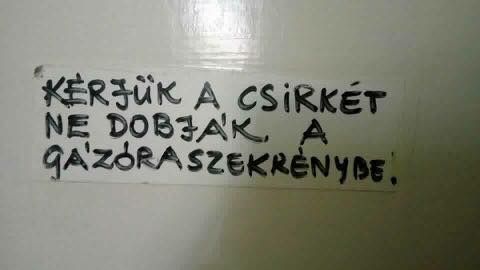 KÉRJÜK A CSIRKÉT
NE DOBJÁK A
GÁZÓRASZEKRÉNYBE!